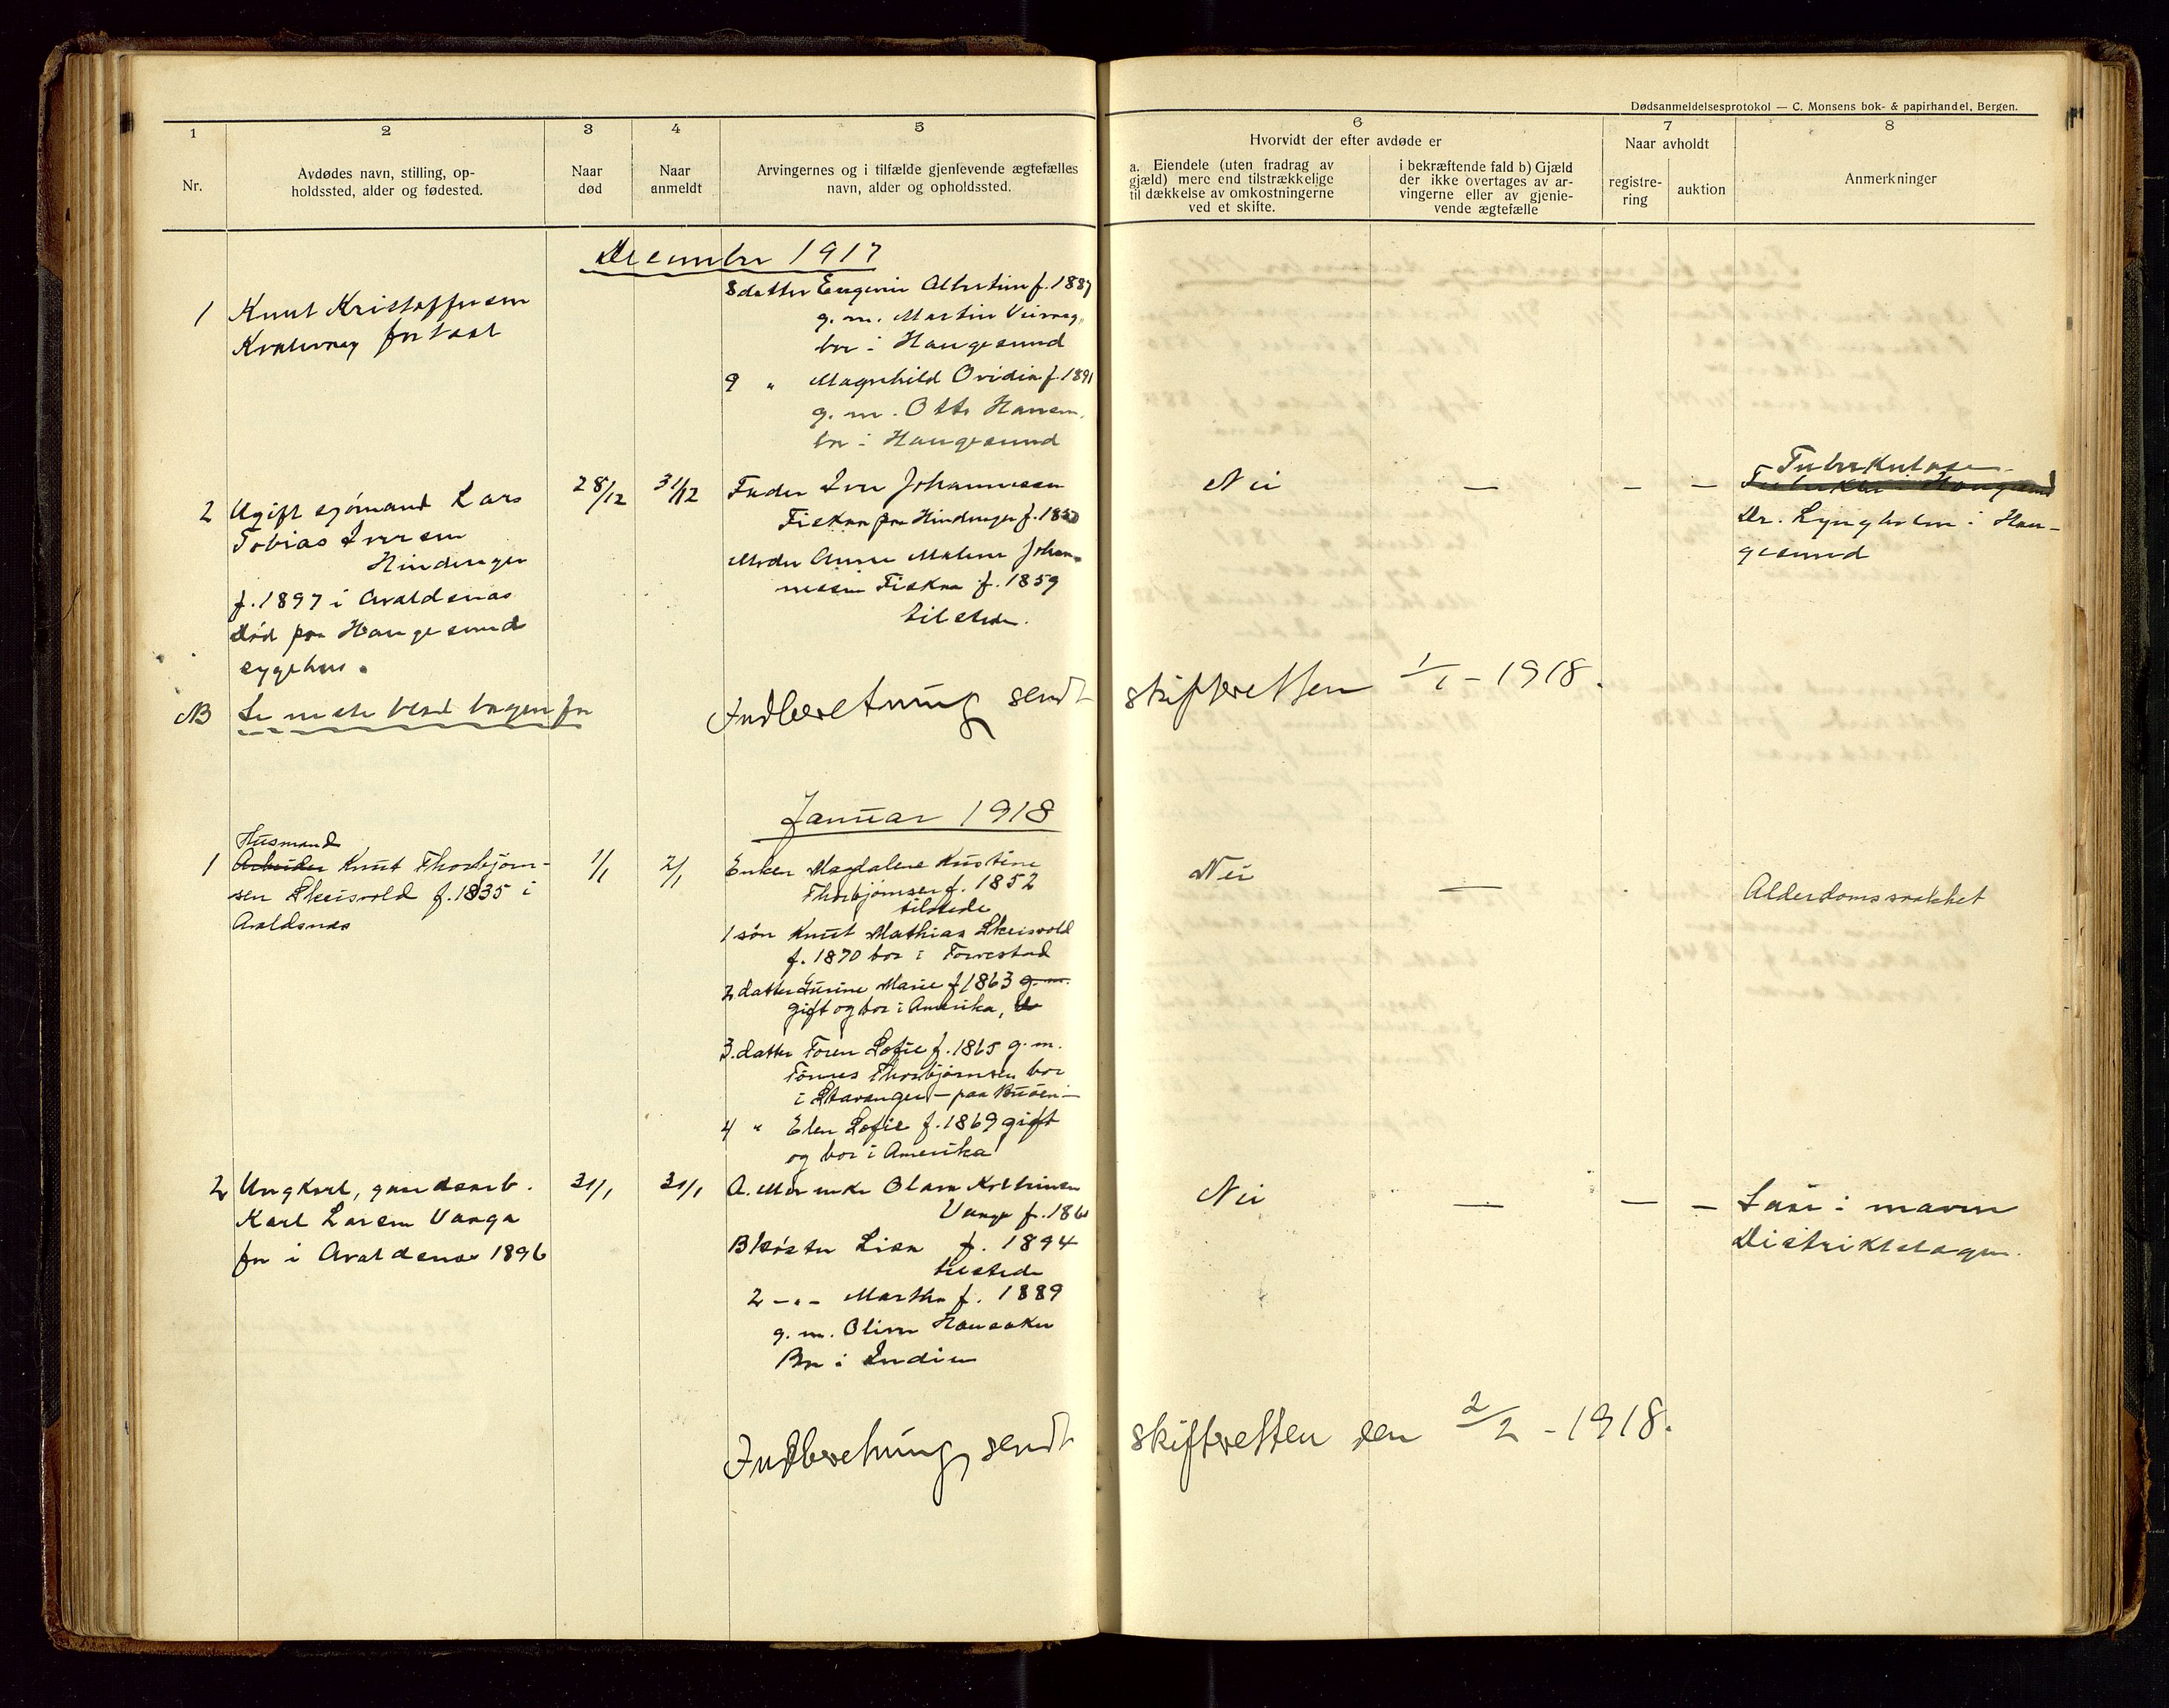 Dødsanmeldelsesprotokol — C. Monsens bok- & papirhandel, Bergen.
1
2
3
4
5
6
7
8
Nr.
Avdødes navn, stilling, op-
holdssted, alder og fødested.
Naar
død
Naar
anmeldt
Arvingernes og i tilfælde gjenlevende ægtefælles
navn, alder og opholdssted.
Hvorvidt der efter avdøde er
a. Eiendele (uten fradrag av
gjæld) mere end tilstrækkelige
til dækkelse av omkostningerne
ved et skifte.
i bekræftende fald b) Gjæld
der ikke overtages av ar-
vingerne eller av gjenle-
vende ægtefælle
Naar avholdt
registre-
ring
auktion
Anmerkninger
December 1917
1 Knut Kristoffersen
fortsat
8 datter Eugenie Albertine f. 1887
g. m. Martin
bor i Haugesund
9 " Magnhild Ovidia f. 1891
g. m. Otto Hansen.
bor i Haugesund
2 Ugift sjømand Lars
Tobias Iversen
Hinderager
f. 1897 i Avaldsnes
Død paa Haugesund
sygehus.
28/12
31/12
Fader Iver Johannessen
Fiskaa paa Hinderager f.
Moder Anne Malene Johan-
nessen Fiskaa f. 1859
tilstede.
Nei
—
—
—
Tuberkulose
Dr. Lyngholm i Hau-
gesund
NB Se neste blad bagenfor
Indberetning sendt skifteretten 1/1 - 1918.
Januar 1918
Husmand
1 Arbeider Knut Thorbjørn-
sen Skeisvold f. 1835 i
Avaldsnes
1/1
2/1
Enken Magdalene Kristine
Thorbjørnsen f. 1852
tilstede
1 søn Knut Mathias Skeisvold
f. 1870 bor i Førrestad
2 datter Marie f 1863 g. m.
gift og bor i Amerika,
3. datter Toren Sofie f. 1865 g. m.
Tønnes Thorbjørnsen bor
i Stavanger - paa Buøen -
4 " Elen Sofie f. 1869 gift
og bor i Amerika
Nei
—
Alderdomssvakhet
2 Ungkarl, gaardsarb.
Karl Larsen Vaaga
før i Avaldsnes 1896
31/1
31/1
A. Mor enke Olava
Vaage f.
B 1 søster Lisa f. 1894
tilstede
2 - " - Martha f. 1889
g. m. Oliver
Bor i Indien
Nei
—
—
—
Saar i maven
Distriktslægen.
Indberetning sendt skifteretten den 2/2 - 1918.